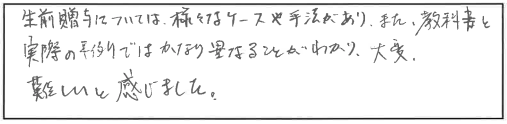 生前贈与については、様々なケースや手法があり、また、教科書と
実際の手例りではかなり異なることがわかり、大変、
難しいと感じました。